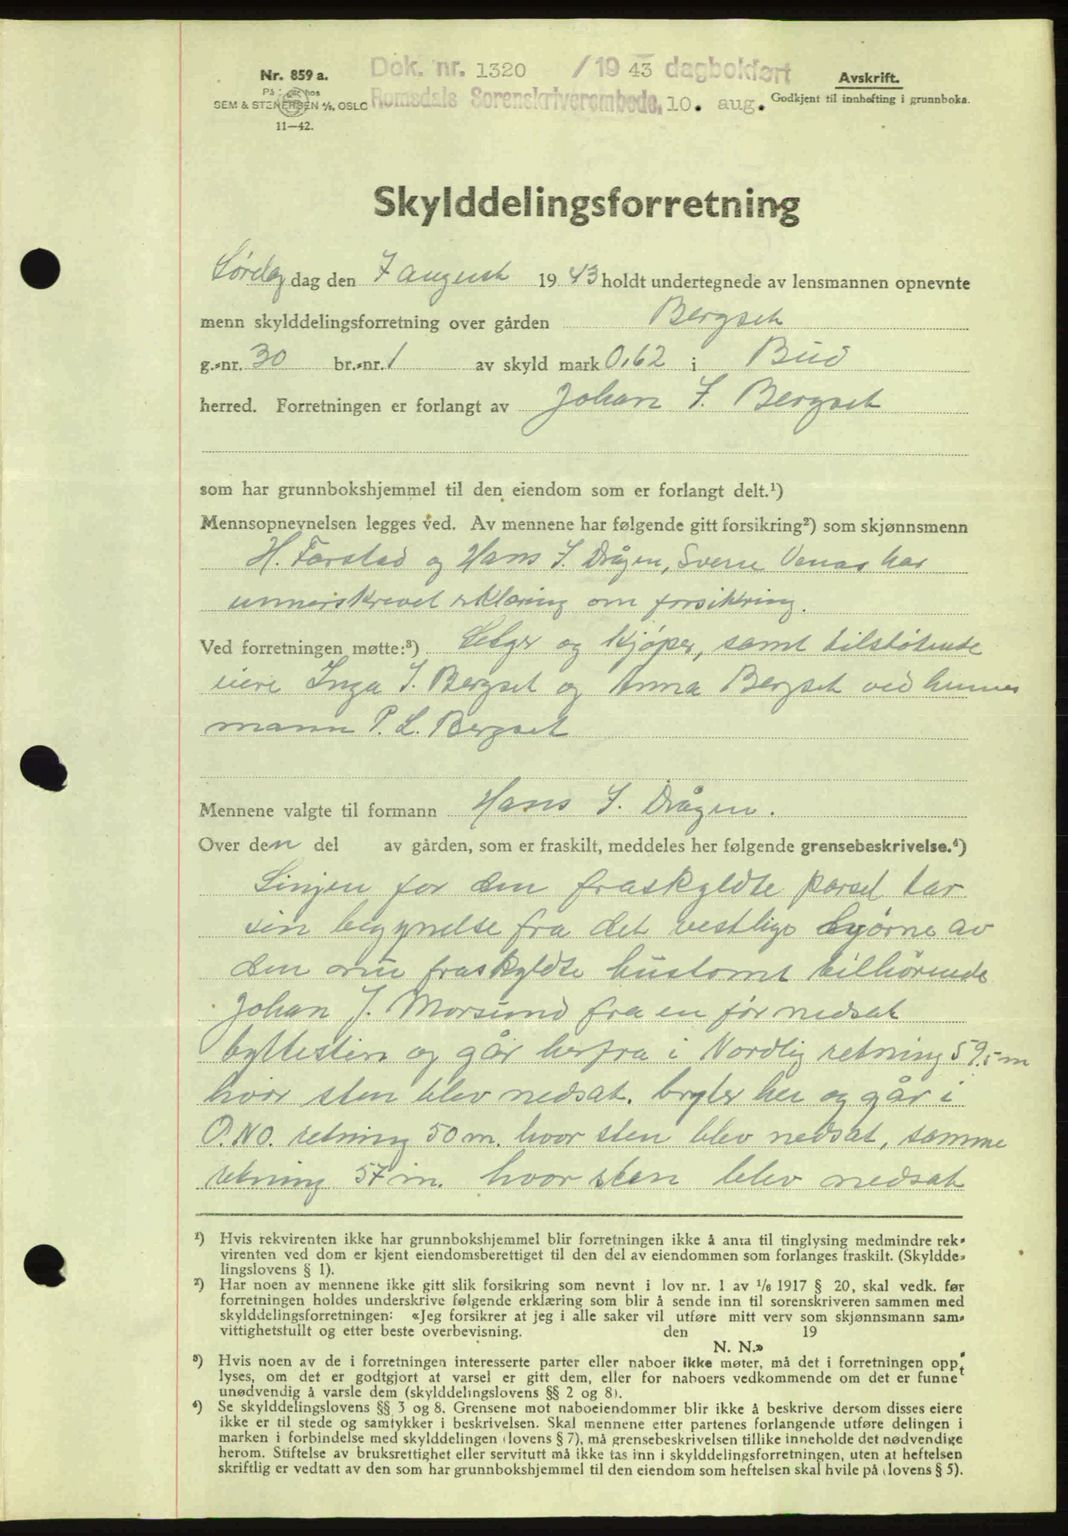 Nr. 859 a.
På hos
SEM & STENERSEN A/S, OSLO
11—42.
Dok. nr. 1320 /1943 dagbokført
Romsdals Sorenskriverembede, 10. aug.
Avskrift.
Godkjent til innhefting i grunnboka.
Skylddelingsforretning
Lørdag dag den 7 august 1943 holdt undertegnede av lensmannen opnevnte
menn skylddelingsforretning over gården Bergset
g.-nr. 30 br.-nr. 1 av skyld mark 0,62 i Bud
herred. Forretningen er forlangt av Johan J. Bergset
som har grunnbokshjemmel til den eiendom som er forlangt delt.¹)
Mennsopnevnelsen legges ved. Av mennene har følgende gitt forsikring²) som skjønnsmenn
H. Farstad og Hans J. Drågen, Sverre har
underskrevet erklæring om forsikring.
Ved forretningen møtte:³) Selger og kjøper, samt tilstøtende
eiere Inga J. Bergset og Anna Bergset ved hennes
mann P. L. Bergset
Mennene valgte til formann Hans J. Drågen.
Over den del av gården, som er fraskilt, meddeles her følgende grensebeskrivelse.⁴)
Linjen for den fraskyldte parsel tar
sin begynelse fra det vestlige hjørne av
den nu fraskyldte hustomt tilhørende
Johan J. Morsund fra en før nedsat
byttesten og går herfra i Nordlig retning 59,5 m
hvor sten blev nedsat. bryter her og går i
O.NO. retning 50 m. hvor sten blev nedsat, samme
retning 57 m. hvor sten blev nedsat
¹) Hvis rekvirenten ikke har grunnbokshjemmel blir forretningen ikke å anta til tinglysing medmindre rek-
virenten ved dom er kjent eiendomsberettiget til den del av eiendommen som forlanges fraskilt. (Skyldde-
lingslovens § 1).
²) Har noen av mennene ikke gitt slik forsikring som nevnt i lov nr. 1 av 1/6 1917 § 20, skal vedk. før
forretningen holdes underskrive følgende erklæring som blir å sende inn til sorenskriveren sammen med
skylddelingsforretningen: «Jeg forsikrer at jeg i alle saker vil utføre mitt verv som skjønnsmann sam-
vittighetsfullt og etter beste overbevisning. den 19
N. N.»
³) Hvis noen av de i forretningen interesserte parter eller naboer ikke møter, må det i forretningen opp-
lyses, om det er godtgjort at varsel er gitt dem, eller for naboers vedkommende om det er funnet
unødvendig å varsle dem (skylddelingslovens §§ 2 og 8).
⁴) Se skylddelingslovens §§ 3 og 8. Grensene mot naboeiendommer blir ikke å beskrive dersom disses eiere
ikke er til stede og samtykker i beskrivelsen. Skal mennene etter partenes forlangende utføre delingen i
marken i forbindelse med skylddelingen (lovens § 7), må grensebeskrivelsen tillike inneholde det nødvendige
herom. Stiftelse av bruksrettighet eller servitutt må ikke tas inn i skylddelingsforretningen, uten at heftelsen
skriftlig er vedtatt av den som har grunnbokshjemmel til den eiendom som heftelsen skal hvile på (lovens § 5).